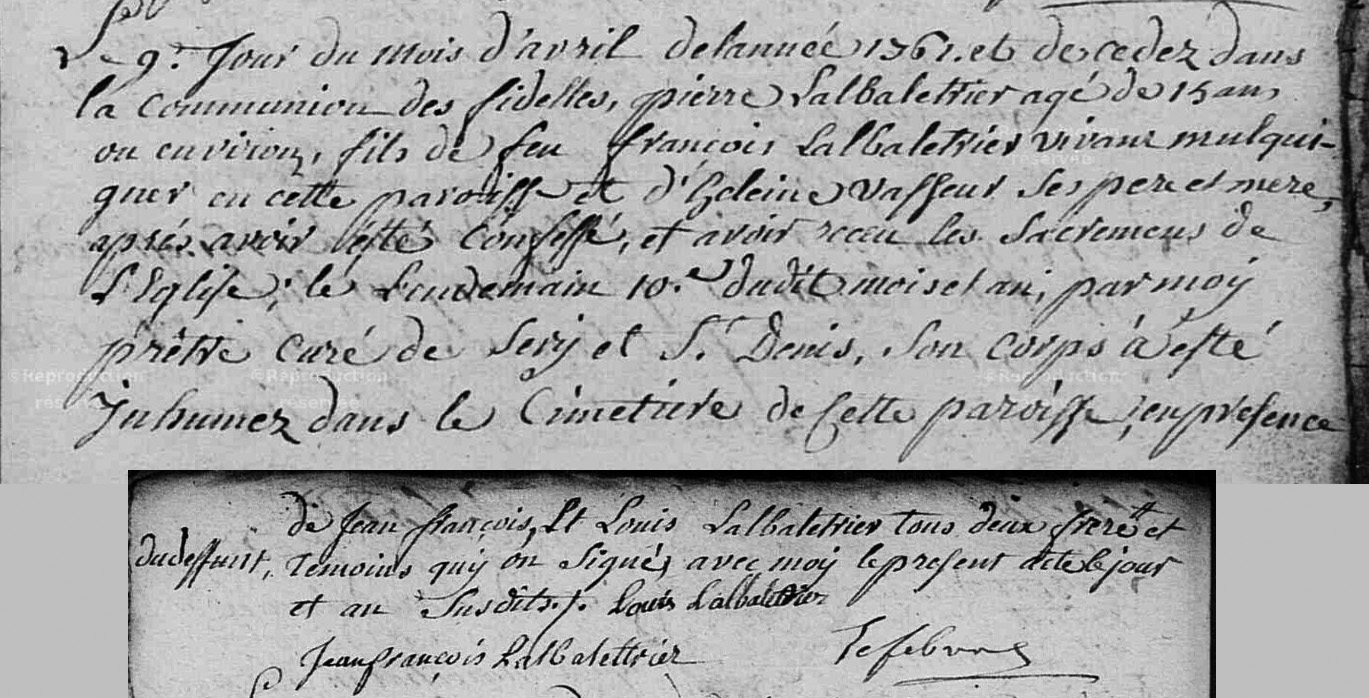 Le 9e. Jour du mois d'avril delannée 1761. et decedez dans
la communion des fidelles, pierre Lalbaletrier agé de 15 ans
ou environ, fils de feu françois Lalbaletrier vivant mulqui-
gner en cette paroisse et d'heleine vasseur ses pere et mere,
aprés avoir ésté confessé, et avoir receu les sacremens de
L'Eglise; le Lendemain 10.e dudit mois et an, par moy
prêtre curé de Sery et St. Denis, son corps à ésté
Inhumez dans le Cimetiere de Cette paroisse, en presence
de Jean françois, Et Louis Lalbaletrier tous deux frere et
dudeffunt, temoins quy on signés avec moy le present acte le jour
et an susdits./. Louis Lalbaletrier
Jean françois Lalbalettrier Lefebvre
©Reproduction réservée
©Reproduction réservée
©Reproduction
réservée